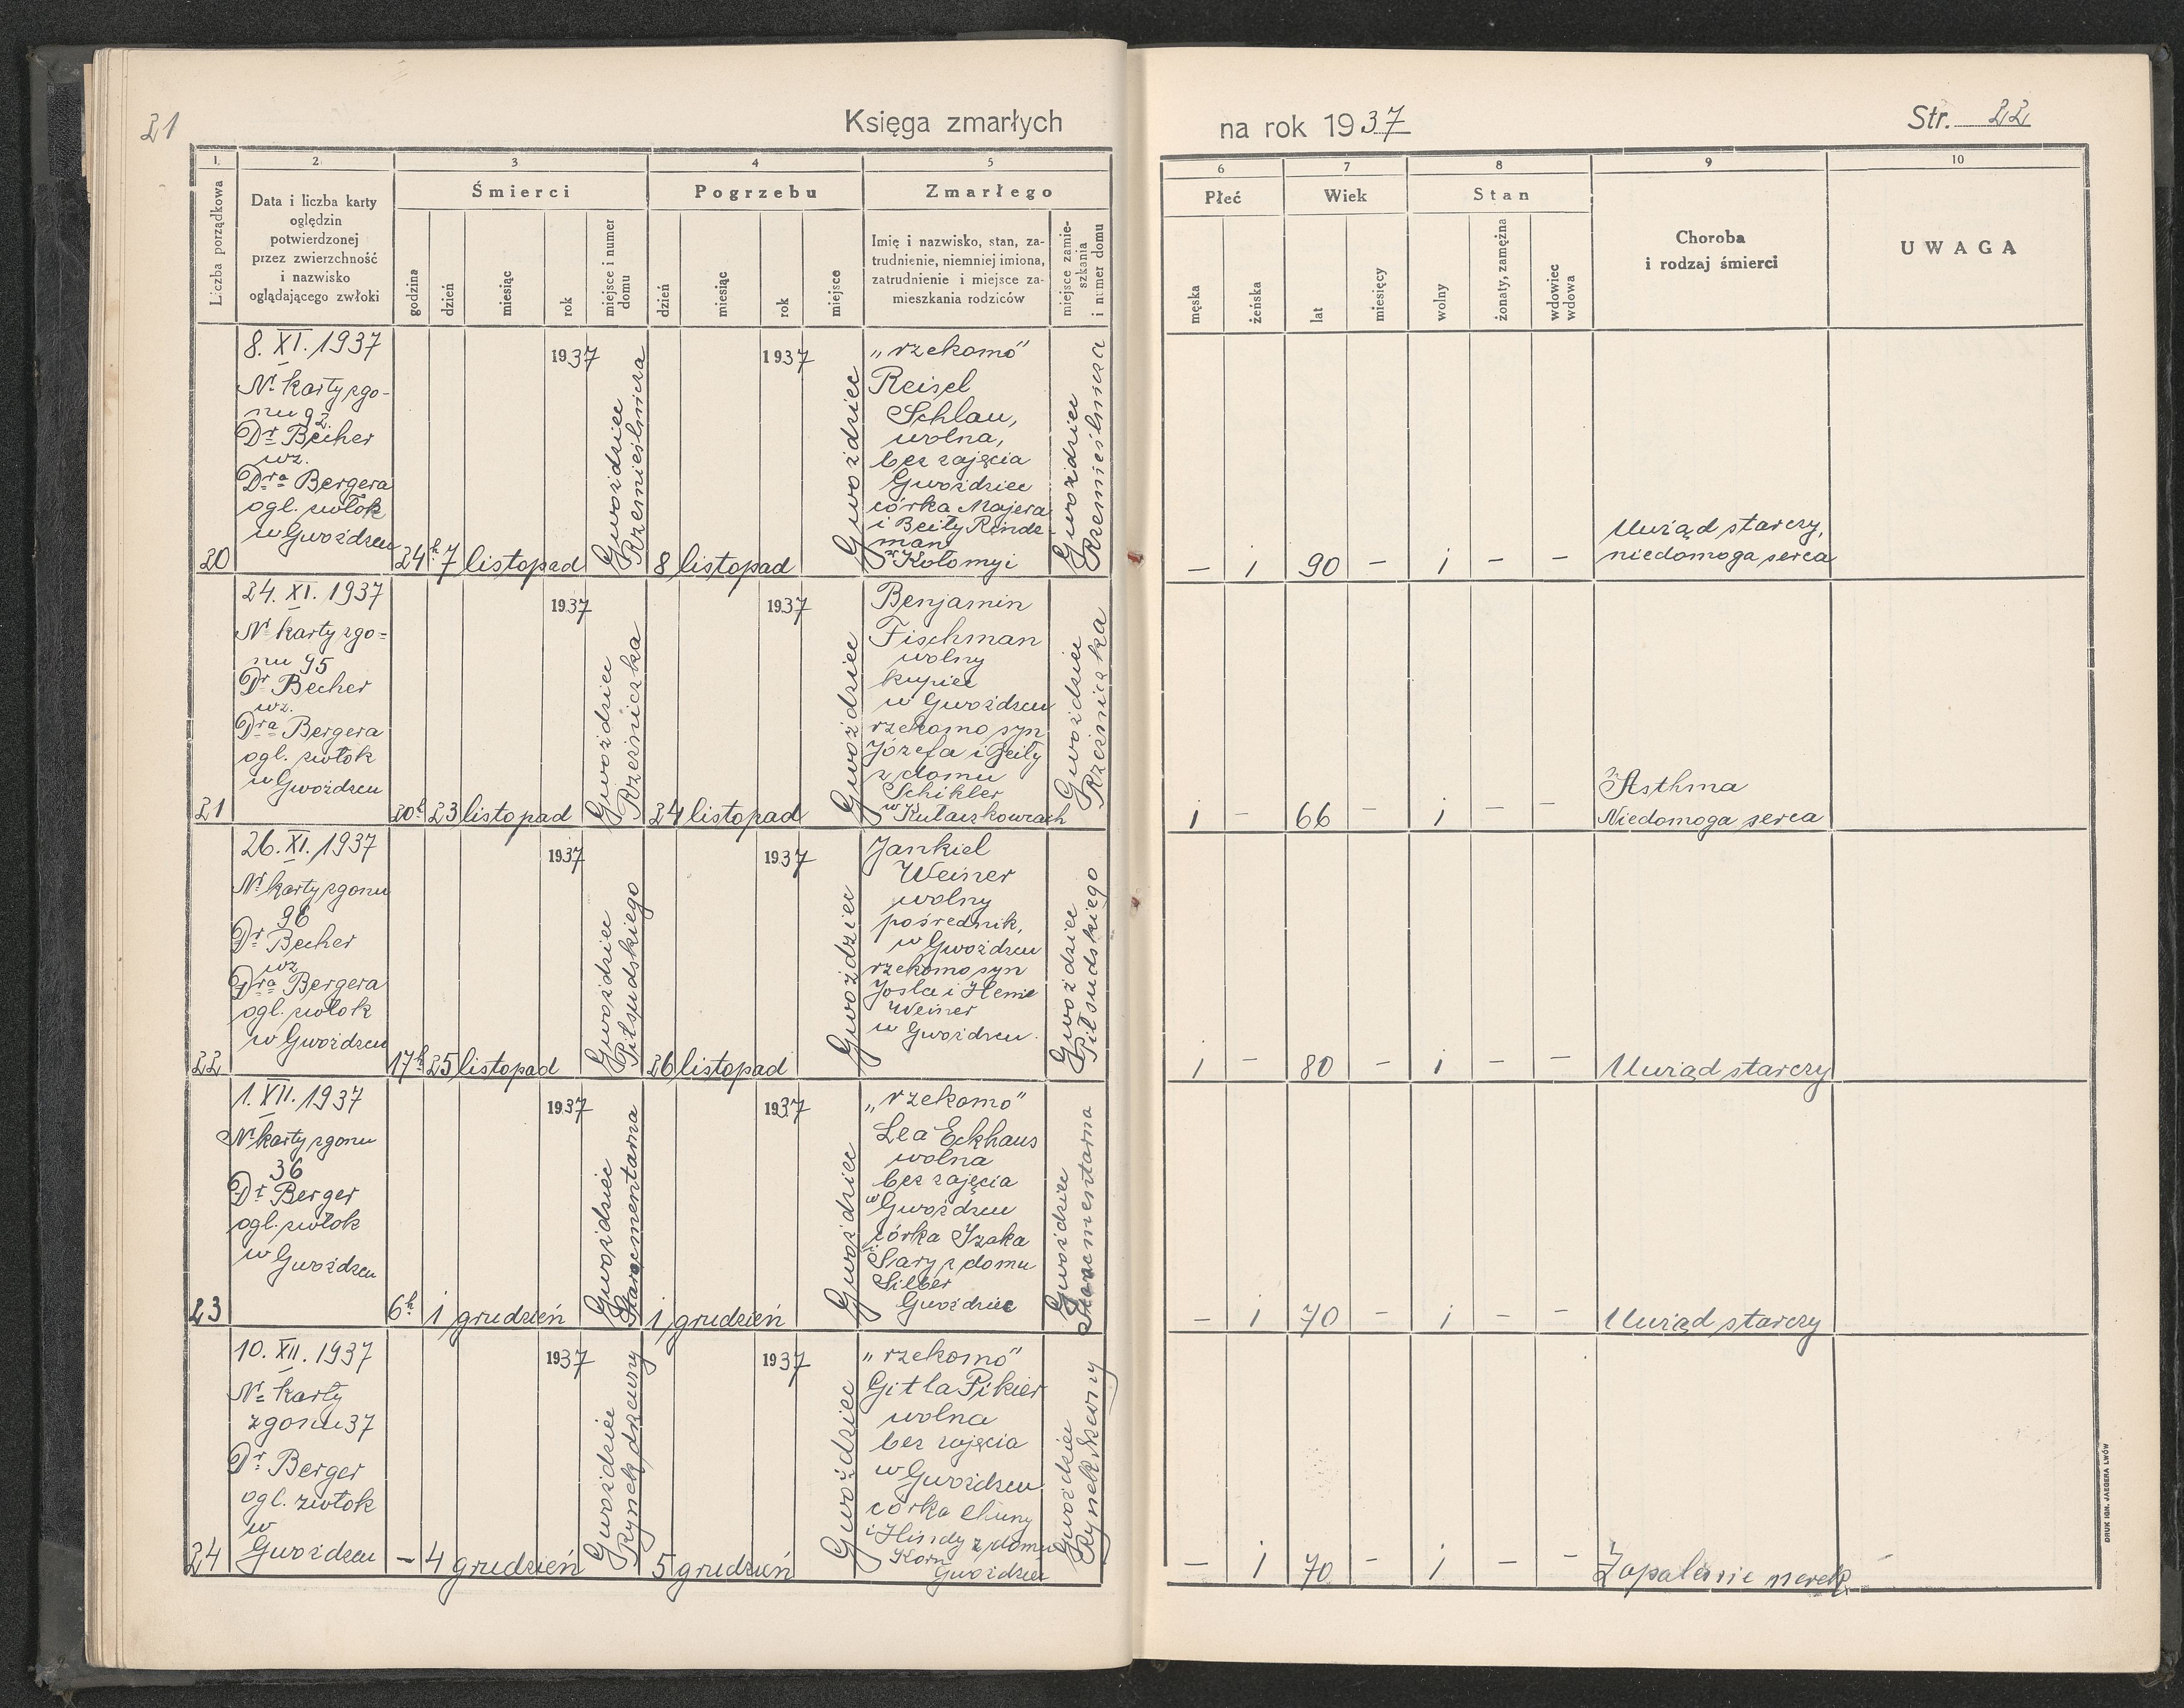 21
Księga zmarłych
na rok 1937
Str. 22
1.
2
3
4
5
6
7
8
9
10
Liczba porządkowa
Data i liczba karty
oględzin
potwierdzonej
przez zwierzchność
i nazwisko
oglądającego zwłoki
Śmierci
godzina
dzień
miesiąc
rok
miejsce i numer
domu
Pogrzebu
dzień
miesiąc
rok
miejsce
Zmarłego
Imię i nazwisko, stan, za-
trudnienie, niemniej imiona,
zatrudnienie i miejsce za-
mieszkania rodziców
miejsce zamie-
szkania
i numer domu
Płeć
męska
żeńska
Wiek
lat
miesięcy
Stan
wolny
żonaty, zamężna
wdowiec
wdowa
Choroba
i rodzaj śmierci
UWAGA
20
8. XI. 1937
Nr karty zgo-
nu 92.
Dr Becher
wz.
Dra Bergera
ogl. zwłok
w Gwoźdzcu
24h 7 listopad 1937
Gwoździec
Rzemieślnicza
8 listopad 1937
Gwoździec
"rzekomo"
Reisel
Schlau,
wolna,
bez zajęcia
Gwoździec
córka Majera
i Beity Rinde-
man
z Kołomyi
Gwoździec
Rzemieślnicza
— 1 90 — 1 — —
Uwiąd starczy,
niedomoga serca
21
24. XI. 1937
Nr karty zgo-
nu 95
Dr Becher
wz.
Dra Bergera
ogl. zwłok
w Gwoźdzcu
20h 23 listopad 1937
Gwoździec
Rzeźniczka
24 listopad 1937
Gwoździec
Benjamin
Fischman
wolny
kupiec
w Gwoźdzcu
rzekomo syn
Józefa i Beity
z domu
Schikler
w Kułaczkowcach
Gwoździec
Rzeźniczka
1 — 66 — 1 — —
Asthma
Niedomoga serca
22
26. XI. 1937
Nr karty zgonu
96
Dr Becher
wz
Dra Bergera
ogl. zwłok
w Gwoźdzcu
17h 25 listopad 1937
Gwoździec
Piłsudskiego
26 listopad 1937
Gwoździec
Jankiel
Weiner
wolny
pośrednik,
w Gwoźdzcu
rzekomo syn
Josla i Heni
Weiner
w Gwoźdzcu.
Gwoździec
Piłsudskiego
1 — 80 — 1 — —
Uwiąd starczy
23
1. XII. 1937
Nr karty zgonu
36
Dr Berger
ogl. zwłok
w Gwoźdzcu
6h 1 grudzień 1937
Gwoździec
Staracmentarna
1 grudzień 1937
Gwoździec
"rzekomo"
Lea Eckhaus
wolna
bez zajęcia
w Gwoźdzcu
córka Izaka
i Sary z domu
Silber
Gwoździec
Gwoździec
Staracmentarna
— 1 70 — 1 — —
Uwiąd starczy
24
10. XII. 1937
Nr karty
zgonu 37
Dr Berger
ogl. zwłok
w
Gwoźdzcu
— 4 grudzień 1937
Gwoździec
Rynek drzewny
5 grudzień 1937
Gwoździec
"rzekomo"
Gitla Pikier
wolna
bez zajęcia
w Gwoźdzcu
córka Chuny
i Hindy z domu
Korn
Gwoździec
Gwoździec
Rynek drzewny
— 1 70 — 1 — —
Zapalenie nerek
DRUK IGN. JAEGERA LWÓW